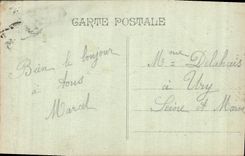 CARTE POSTALE
Bien le bonjour
à tous
Marcel
Mme Delahais
à Ury
Seine et Marne